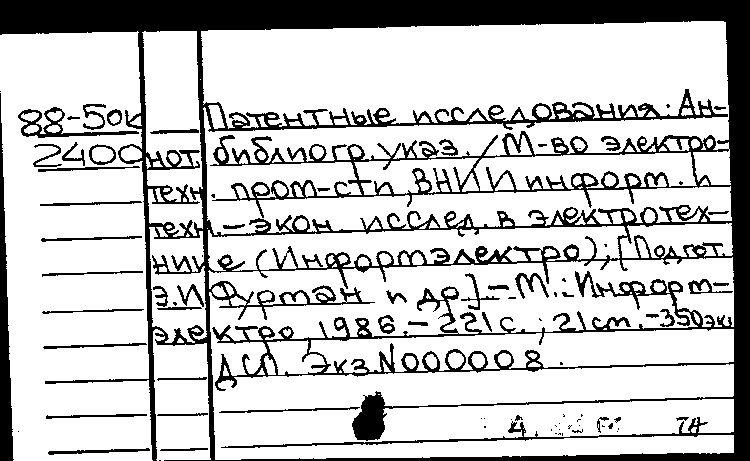 88-50к Патентные исследования: Ан-
2400 нот. библиогр. указ. / М-во электро-
техн. пром-сти, ВНИИ информ. и
техн.-экон. исслед. в электротех-
нике (Информэлектро); [Подгот.
Э.И. Фуртан и др.] - М.: Информ-
электро, 1986. - 221 с.; 21 cm. - 350 экз
ДСП. Экз. N000008.